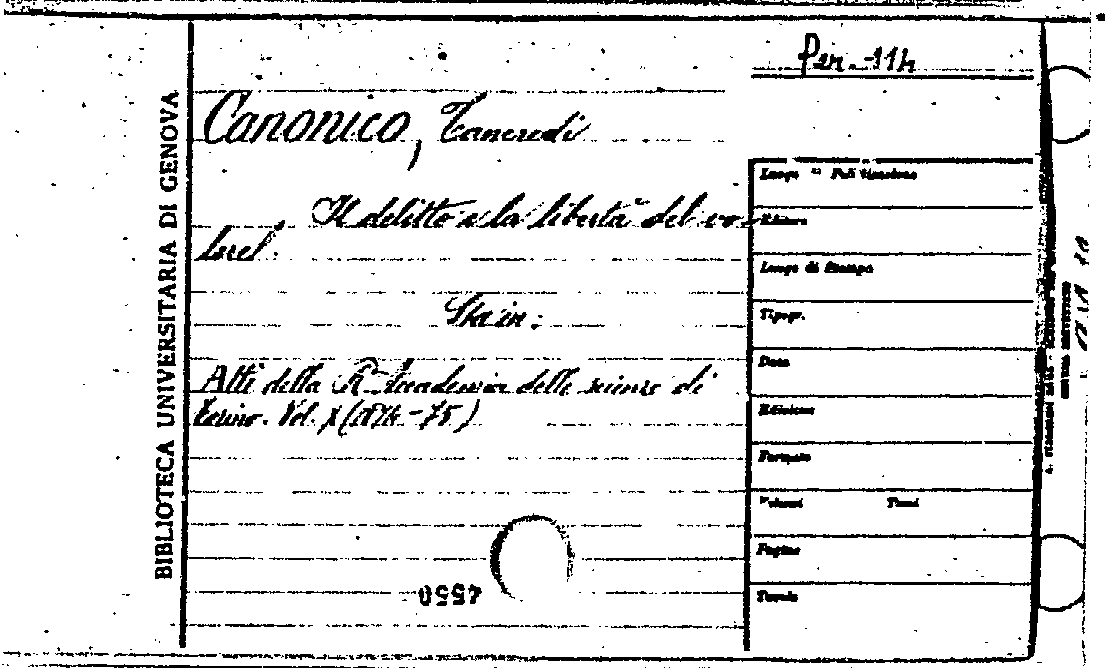 Per. 114
BIBLIOTECA UNIVERSITARIA DI GENOVA
Canonico, Tancredi
Il delitto e la libertà del vo-
lere.
Sta in:
Atti della R. Accademia delle scienze di
Torino. Vol. X (1874-75)
4550
Luogo di Pubblicazione
Editore
Luogo di Stampa
Tipogr.
Data
Edizione
Formato
Volumi Tomi
Pagine
Tavole